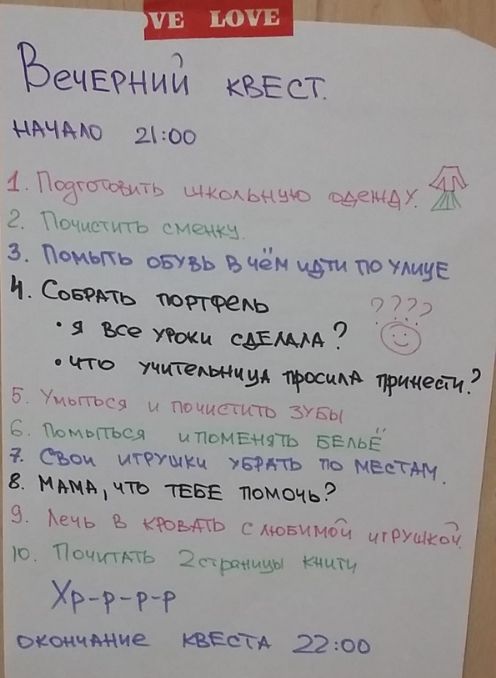 VE LOVE
ВЕЧЕРНИЙ КВЕСТ.
НАЧАЛО 21:00
1. Подготовить школьную одежду.
2. Почистить сменку.
3. Помыть обувь в чём идти по улице
4. Собрать портфель
????
• я все уроки сделала?
• что учительница просила принести?
5. Умыться и почистить зубы
6. Помыться и поменять бельё
7. Свои игрушки убрать по местам.
8. Мама, что тебе помочь?
9. Лечь в кровать с любимой игрушкой.
10. Почитать 2 страницы книги
Хр-р-р-р
окончание квеста 22:00